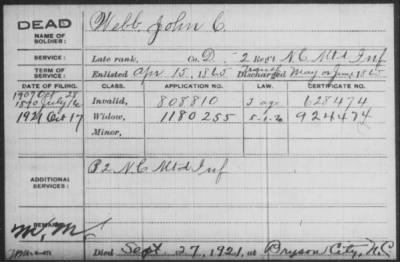 DEAD
NAME OF SOLDIER: Webb, John C.
SERVICE: Late rank, Co. D. - 2 Reg't N.C. Mtd Inf
TERM OF SERVICE: Enlisted Apr 15, 1865 Discharged May or June, 1865
DATE OF FILING. CLASS. APPLICATION NO. LAW. CERTIFICATE NO.
1907 Oct 28
1890 July Invalid, 808810 628474
1921 Oct 17 Widow, 1180255 5-1-20 924474
Minor,
ADDITIONAL SERVICES: B 2 N.C. Mtd Inf
REMARKS:
Died Sept. 27, 1921, at Bryson City, N.C.